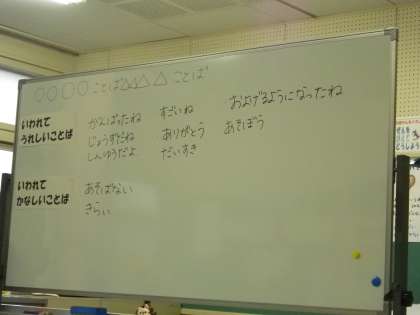 ○○○○ことば△△△△ことば
いわれて
うれしいことば
がんばったね すごいね およげるようになったね
じょうずだね ありがとう あそぼう
しんゆうだよ だいすき
いわれて
かなしいことば
あそばない
きらい